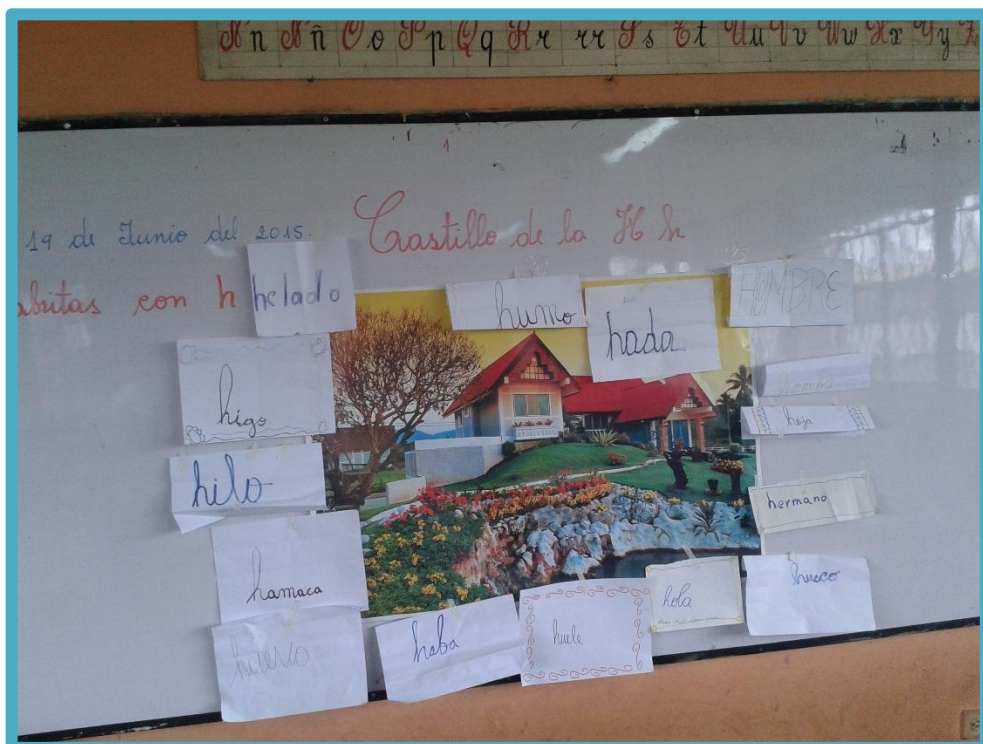 N n Ñ ñ O o P p Q q R r rr S s T t U u V v W w X x Y y Z
19 de Junio del 2015. Castillo de la H h
abritas con h helado
humo
hada
HOMBRE
higo
hoja
hilo
hermano
hamaca
hola
hueco
huevo
haba
huele